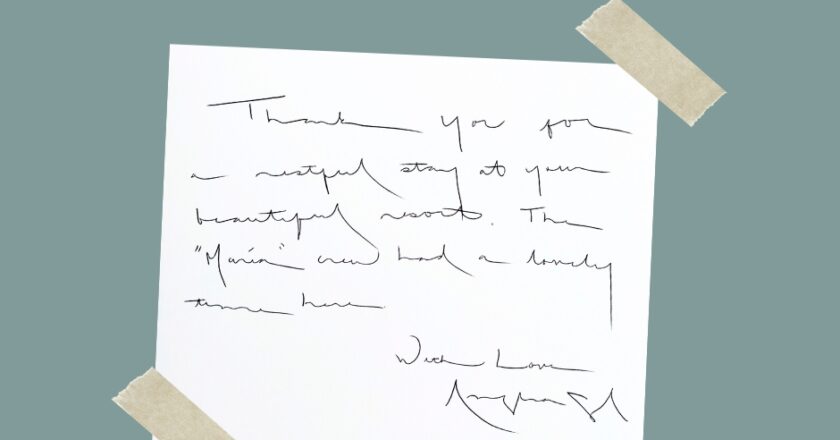 Thank you for
a restful stay at your
beautiful resort. The
"Maria" crew had a lovely
time here
With Love